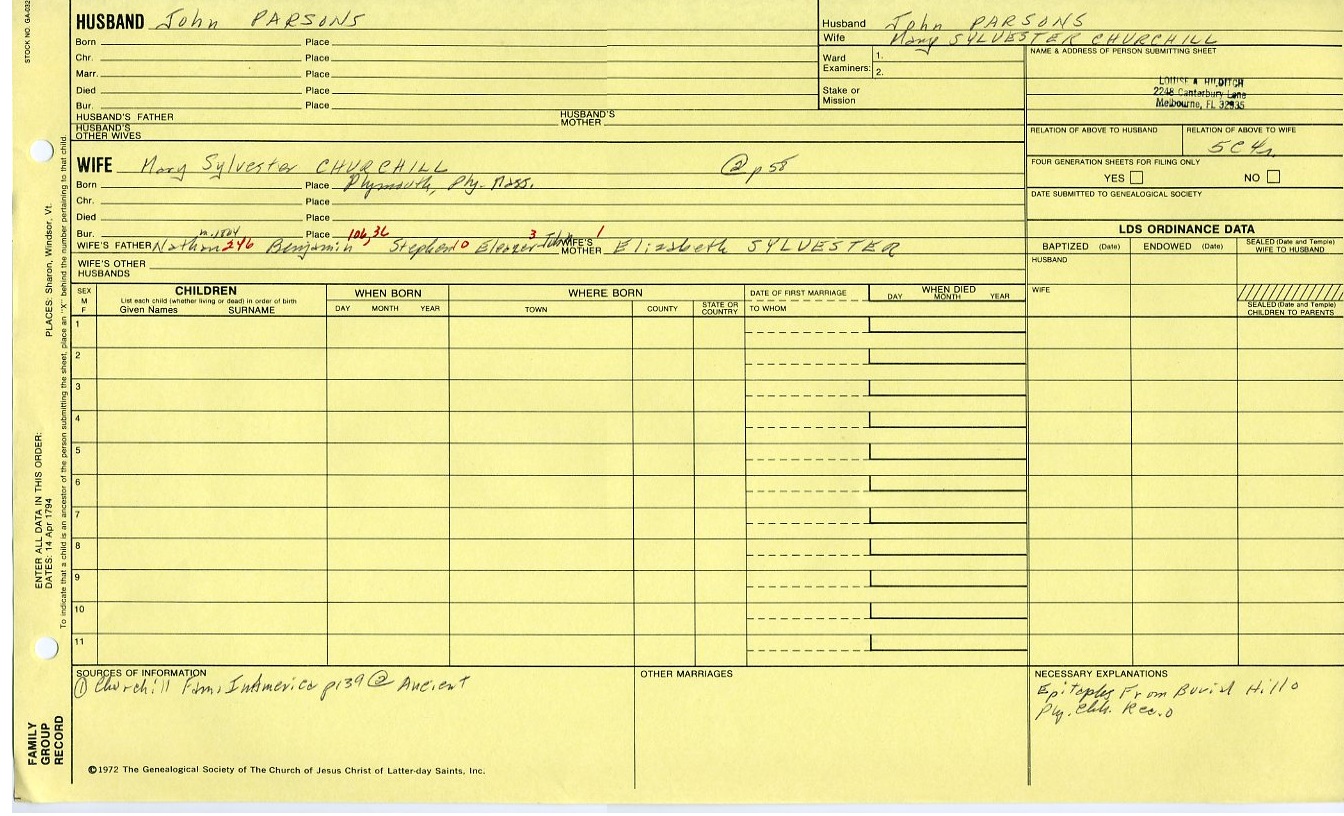 STOCK NO. GA-032
HUSBAND John PARSONS
Born Place
Chr. Place
Marr. Place
Died Place
Bur. Place
HUSBAND'S FATHER HUSBAND'S MOTHER
HUSBAND'S OTHER WIVES
Husband John PARSONS
Wife Mary SYLVESTER CHURCHILL
Ward Examiners: 1.
2.
Stake or Mission
NAME & ADDRESS OF PERSON SUBMITTING SHEET
LOUISE A HILDITCH
2248 Canterbury Lane
Melbourne, FL 32935
RELATION OF ABOVE TO HUSBAND RELATION OF ABOVE TO WIFE
5C4r.
FOUR GENERATION SHEETS FOR FILING ONLY
YES NO
DATE SUBMITTED TO GENEALOGICAL SOCIETY
WIFE Mary Sylvester CHURCHILL @ p 58
Born Place Plymouth, Ply. Mass.
Chr. Place
Died Place
Bur. Place
m. 1804 106,36 3 1
WIFE'S FATHER Nathan 246 Benjamin Stephen 10 Eleazer John WIFE'S MOTHER Elizabeth SYLVESTER
WIFE'S OTHER HUSBANDS
LDS ORDINANCE DATA
BAPTIZED (Date) ENDOWED (Date) SEALED (Date and Temple) WIFE TO HUSBAND
HUSBAND
WIFE
SEALED (Date and Temple) CHILDREN TO PARENTS
SEX M F
CHILDREN
List each child (whether living or dead) in order of birth
Given Names SURNAME
WHEN BORN
DAY MONTH YEAR
WHERE BORN
TOWN COUNTY STATE OR COUNTRY
DATE OF FIRST MARRIAGE
TO WHOM
WHEN DIED
DAY MONTH YEAR
1
2
3
4
5
6
7
8
9
10
11
SOURCES OF INFORMATION
① Churchill Fam. In America p 139 @ Ancient
OTHER MARRIAGES
NECESSARY EXPLANATIONS
Epitaphs From Burial Hill
Ply. Chh. Rec.
©1972 The Genealogical Society of The Church of Jesus Christ of Latter-day Saints, Inc.
FAMILY GROUP RECORD
ENTER ALL DATA IN THIS ORDER:
DATES: 14 Apr 1794
PLACES: Sharon, Windsor, Vt.
To indicate that a child is an ancestor of the person submitting the sheet, place an "X" behind the number pertaining to that child.